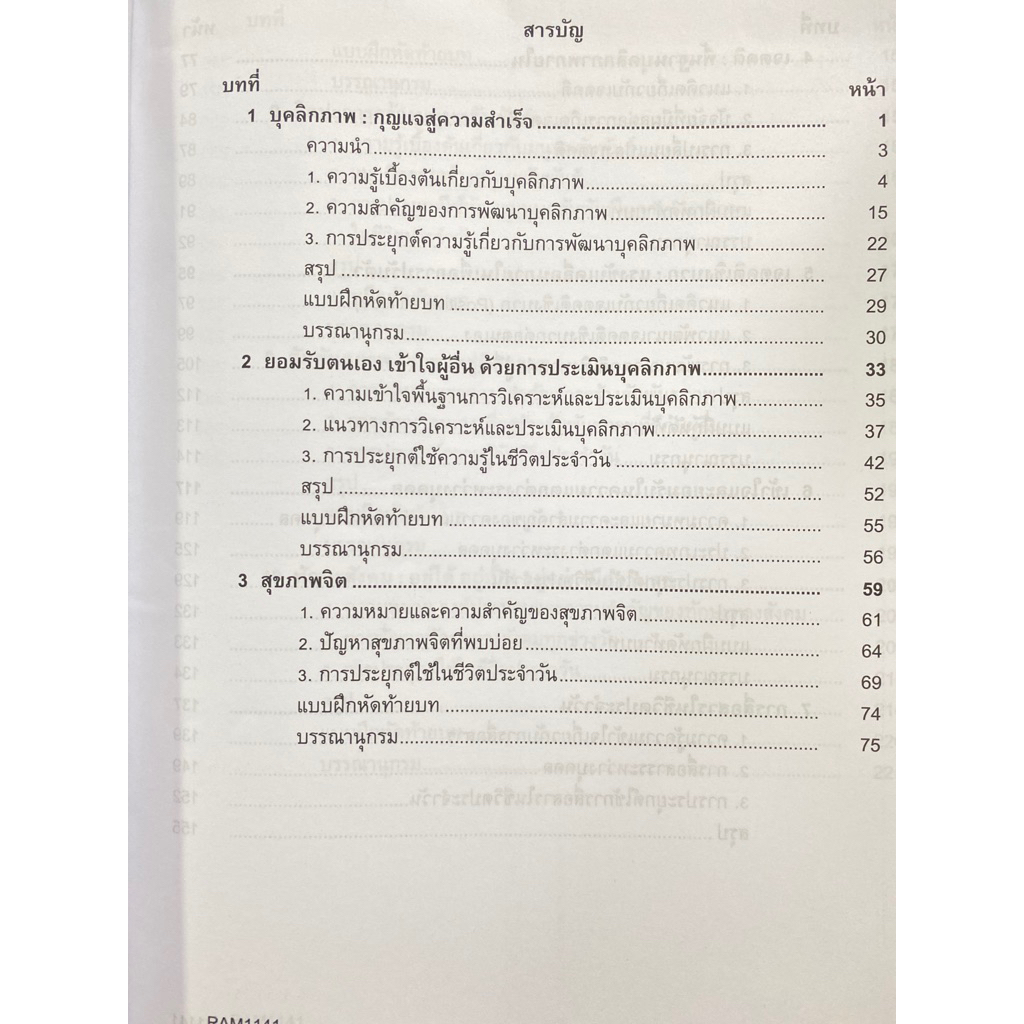 สารบัญ
บทที่ หน้า
1 บุคลิกภาพ : กุญแจสู่ความสำเร็จ 1
ความนำ 3
1. ความรู้เบื้องต้นเกี่ยวกับบุคลิกภาพ 4
2. ความสำคัญของการพัฒนาบุคลิกภาพ 15
3. การประยุกต์ความรู้เกี่ยวกับการพัฒนาบุคลิกภาพ 22
สรุป 27
แบบฝึกหัดท้ายบท 29
บรรณานุกรม 30
2 ยอมรับตนเอง เข้าใจผู้อื่น ด้วยการประเมินบุคลิกภาพ 33
1. ความเข้าใจพื้นฐานการวิเคราะห์และประเมินบุคลิกภาพ 35
2. แนวทางการวิเคราะห์และประเมินบุคลิกภาพ 37
3. การประยุกต์ใช้ความรู้ในชีวิตประจำวัน 42
สรุป 52
แบบฝึกหัดท้ายบท 55
บรรณานุกรม 56
3 สุขภาพจิต 59
1. ความหมายและความสำคัญของสุขภาพจิต 61
2. ปัญหาสุขภาพจิตที่พบบ่อย 64
3. การประยุกต์ใช้ในชีวิตประจำวัน 69
แบบฝึกหัดท้ายบท 74
บรรณานุกรม 75
RAM1141